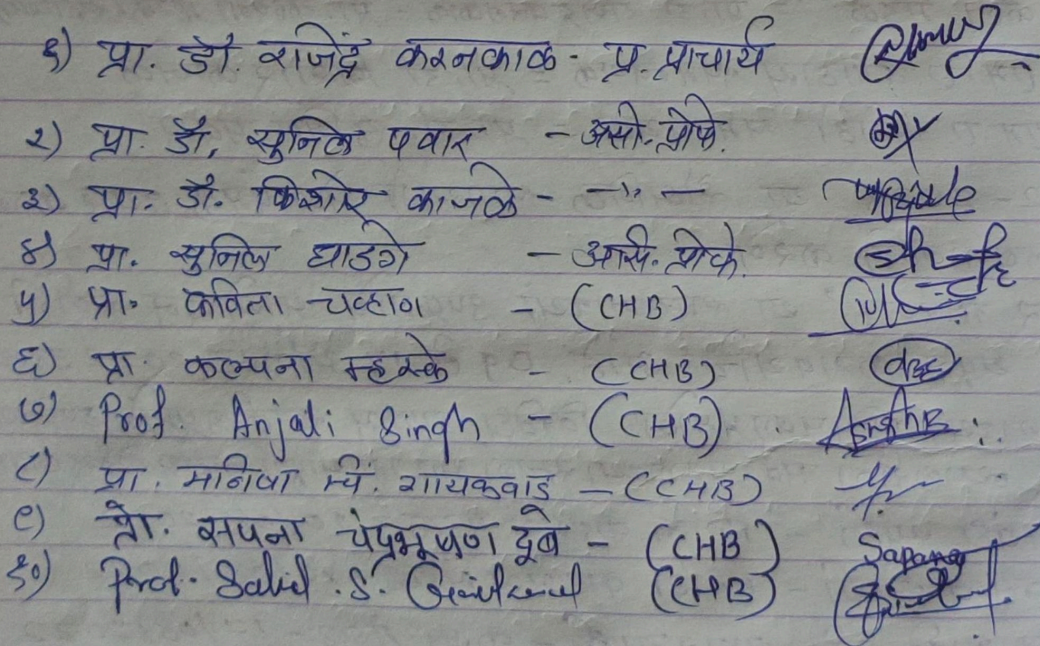 १) प्रा. डॉ. राजेंद्र करनकाळ - प्र. प्राचार्य
२) प्रा. डॉ. सुनिल पवार - असो. प्रोफे.
३) प्रा. डॉ. किशोर काजळे - —〃—
४) प्रा. सुनिल घाडगे - असि. प्रोफे.
५) प्रा. कविता चव्हाण - (CHB)
६) प्रा. कल्पना म्हस्के - (CHB)
७) Prof. Anjali Singh - (CHB)
८) प्रा. मनिषा गायकवाड - (CHB)
९) प्रा. सपना चंद्रभूषण दुबे - (CHB) Sapana
१०) Prof. S. (CHB)